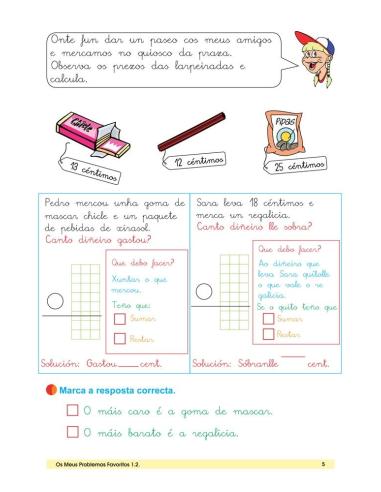 Onte fun dar un paseo cos meus amigos
e mercamos no quiosco da praza.
Observa os prezos das larpeiradas e
calcula.
Chicle
Pipas
13 céntimos
12 céntimos
25 céntimos
Pedro mercou unha goma de
mascar chicle e un paquete
de pebidas de xirasol.
Canto diñeiro gastou?
Que debo facer?
Xuntar o que
mercou.
Teño que:
Sumar
Restar
Solución: Gastou cent.
Sara leva 18 céntimos e
merca un regalicia.
Canto diñeiro lle sobra?
Que debo facer?
Ao diñeiro que
leva Sara quitolle
o que vale o re
galicia.
Se o quito teño que
Sumar
Restar
Solución: Sóbranlle cent.
Marca a resposta correcta.
O máis caro é a goma de mascar.
O máis barato é a regalicia.
Os Meus Problemas Favoritos 1.2.
5